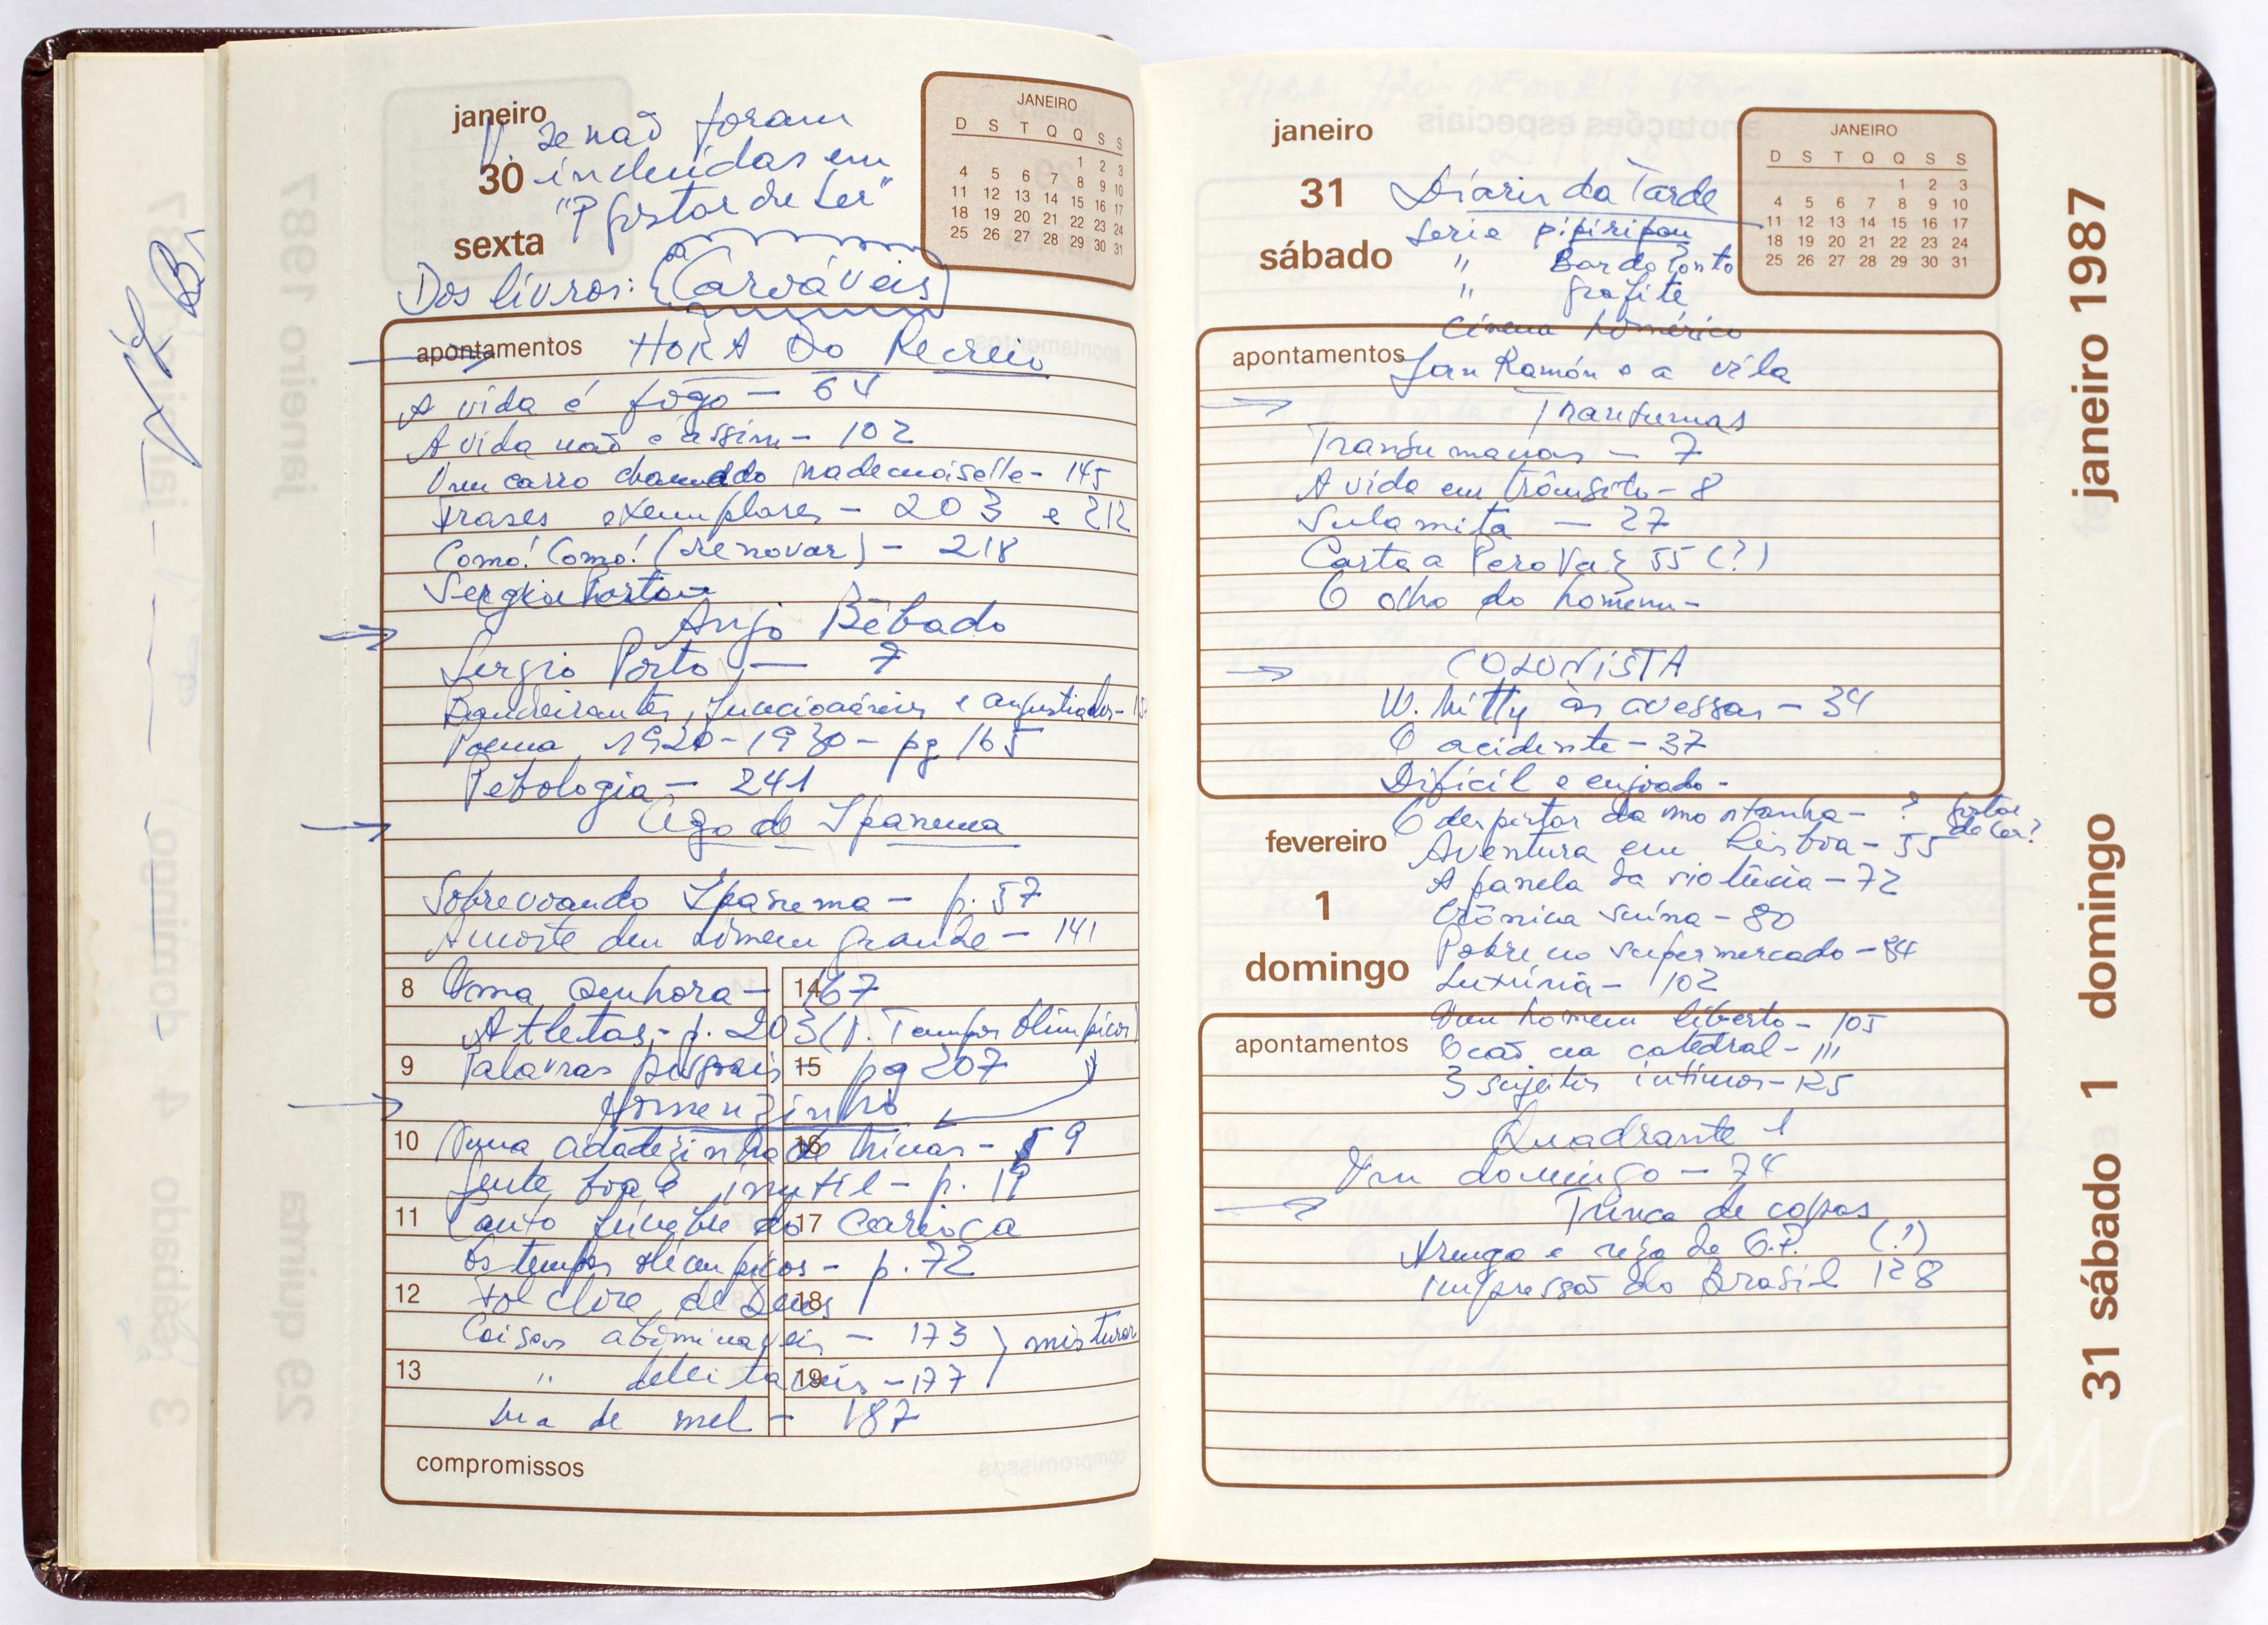 janeiro
30
sexta
V. se não foram
incluídas em
"P gostar de Ler"
JANEIRO
D S T Q Q S S
1 2 3
4 5 6 7 8 9 10
11 12 13 14 15 16 17
18 19 20 21 22 23 24
25 26 27 28 29 30 31
Dos livros: (Carváveis)
apontamentos HORA DO Recreio
A vida é fogo — 64
A vida não é assim — 102
Um carro chamado Mademoiselle - 145
Frases exemplares — 203 e 212
Como! Como! (renovar) - 218
Sergio Porto
Anjo Bêbado
Sergio Porto — 7
Bandeirantes, funcionários e angustiados -
Poema 1920-1930 - pg 165
Petologia — 241
Cego de Ipanema
Sobrevoando Ipanema — p. 57
A morte dum homem grande — 141
8 Uma Senhora — 14 167
Atletas - p. 203 (V. Tempos Olímpicos)
9 Palavras pessoais 15 pg 207
Homenzinho
10 Numa cidadezinha de Minas - 16 9
Gente boa e inútil - p. 19
11 Canto fúnebre do 17 Carioca
Os tempos olímpicos - p. 72
12 Folclore de Deus 18
Coisas abomináveis — 173 } misturar
13 " deleitáveis 19 - 177
Lua de mel - 187
compromissos
janeiro
31
sábado
Diario da Tarde
Serie pipiripau
" Bar do Ponto
" grafite
Cinema homérico
JANEIRO
D S T Q Q S S
1 2 3
4 5 6 7 8 9 10
11 12 13 14 15 16 17
18 19 20 21 22 23 24
25 26 27 28 29 30 31
apontamentos Juan Ramón e a vila
Transumas
Transumanas — 7
A vida em trânsito - 8
Sulamita — 27
Carta a Pero Vaz 55 (?)
O olho do homem -
COLUNISTA
W. Mitty às avessas - 34
O acidente - 37
Difícil e enjoado -
O despertar da montanha - ? gostar de ler?
fevereiro
1
domingo
Aventura em Lisboa - 55
A panela da violência - 72
Crônica suína - 80
Pobre no supermercado - 84
Luxúria - 102
Um homem liberto - 105
apontamentos O cão na catedral - 111
3 sujeitos íntimos - 125
Quadrante 1
Um domingo — 74
Trinca de copas
Arenga e reza de O.P. (?)
Impressão do Brasil 128
janeiro 1987
31 sábado 1 domingo
IMS